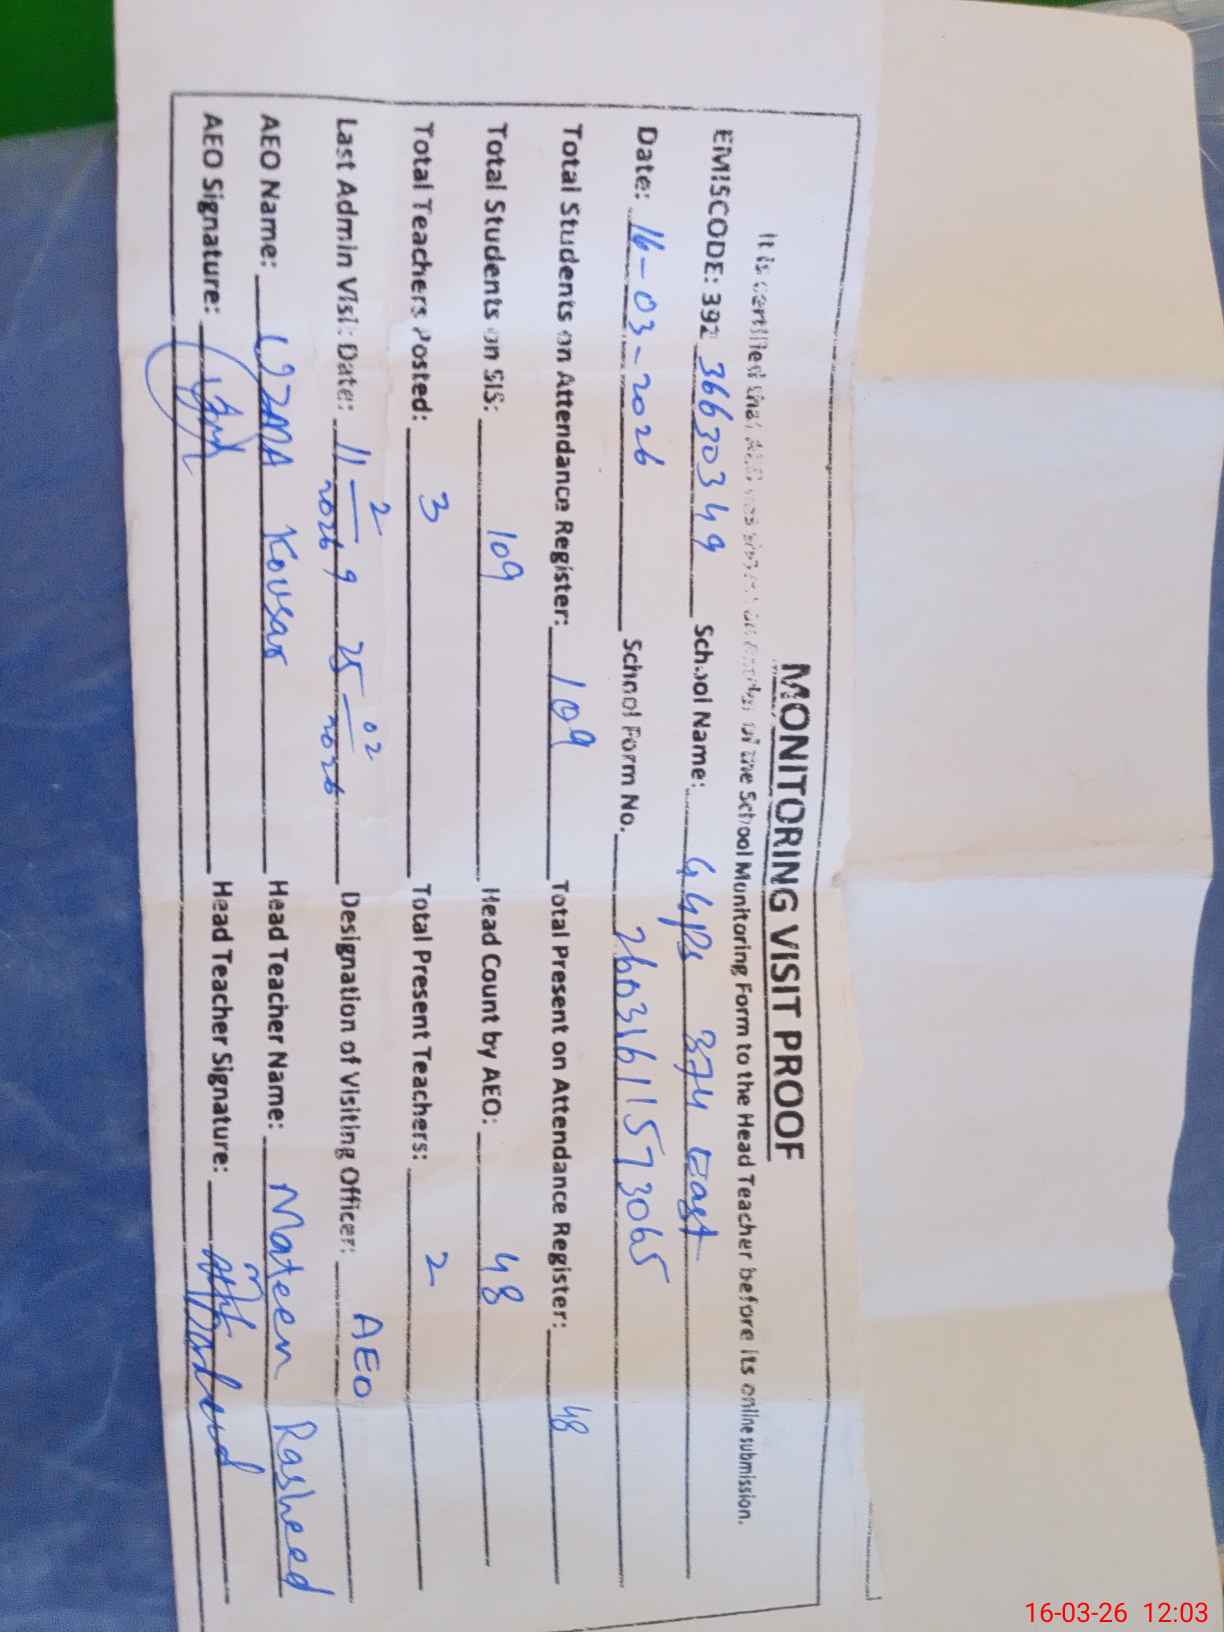 MONITORING VISIT PROOF
It is certified that AEO has the School Monitoring Form to the Head Teacher before its online submission.
EMISCODE: 392 36630349 School Name: GGPS 374 East
Date: 16-03-2026 School Form No. 26031611573065
Total Students on Attendance Register: 109 Total Present on Attendance Register: 48
Total Students on SIS: 109 Head Count by AEO: 48
Total Teachers Posted: 3 Total Present Teachers: 2
Last Admin Visit Date: 11 2 2026 9 25 02 2026 Designation of Visiting Officer: AEO
AEO Name: UZMA Kousar Head Teacher Name: Mateen Rasheed
AEO Signature: Head Teacher Signature:
16-03-26 12:03